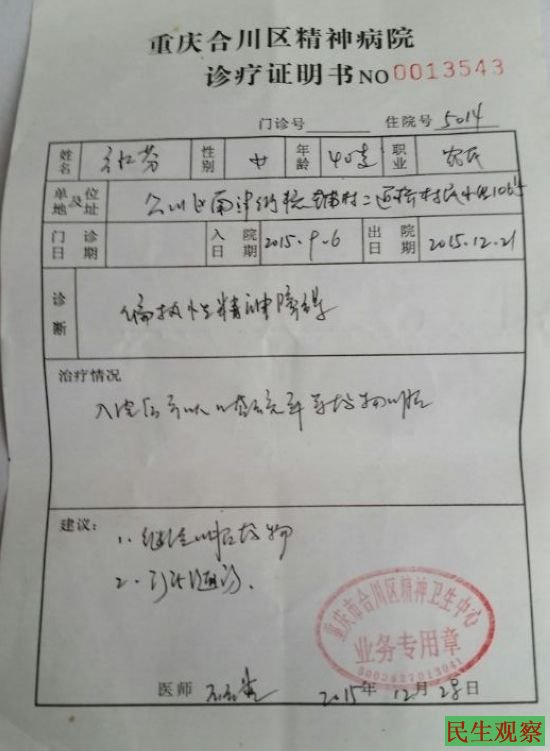 重庆合川区精神病院
诊疗证明书 NO 0013543
门诊号 住院号 5014
姓名 芳 性别 女 年龄 40岁 职业 农民
单位及地址 合川区南津街 村二 村民小组106号
门诊日期 入院日期 2015.9.6 出院日期 2015.12.21
诊断 偏执性精神障碍
治疗情况
入院后予以 等药物治疗
建议:
1.继续 药物
2. 随诊.
重庆市合川区精神卫生中心
业务专用章
医师 2015年12月28日
民生观察